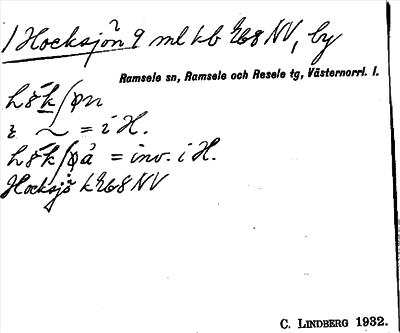 / Hocksjön 9 ml kb 768 NV, by
Ramsele sn, Ramsele och Resele tg, Västernorrl. l.
i ~ = i H.
= inv. i H.
Hocksjö k 768 NV
C. LINDBERG 1932.